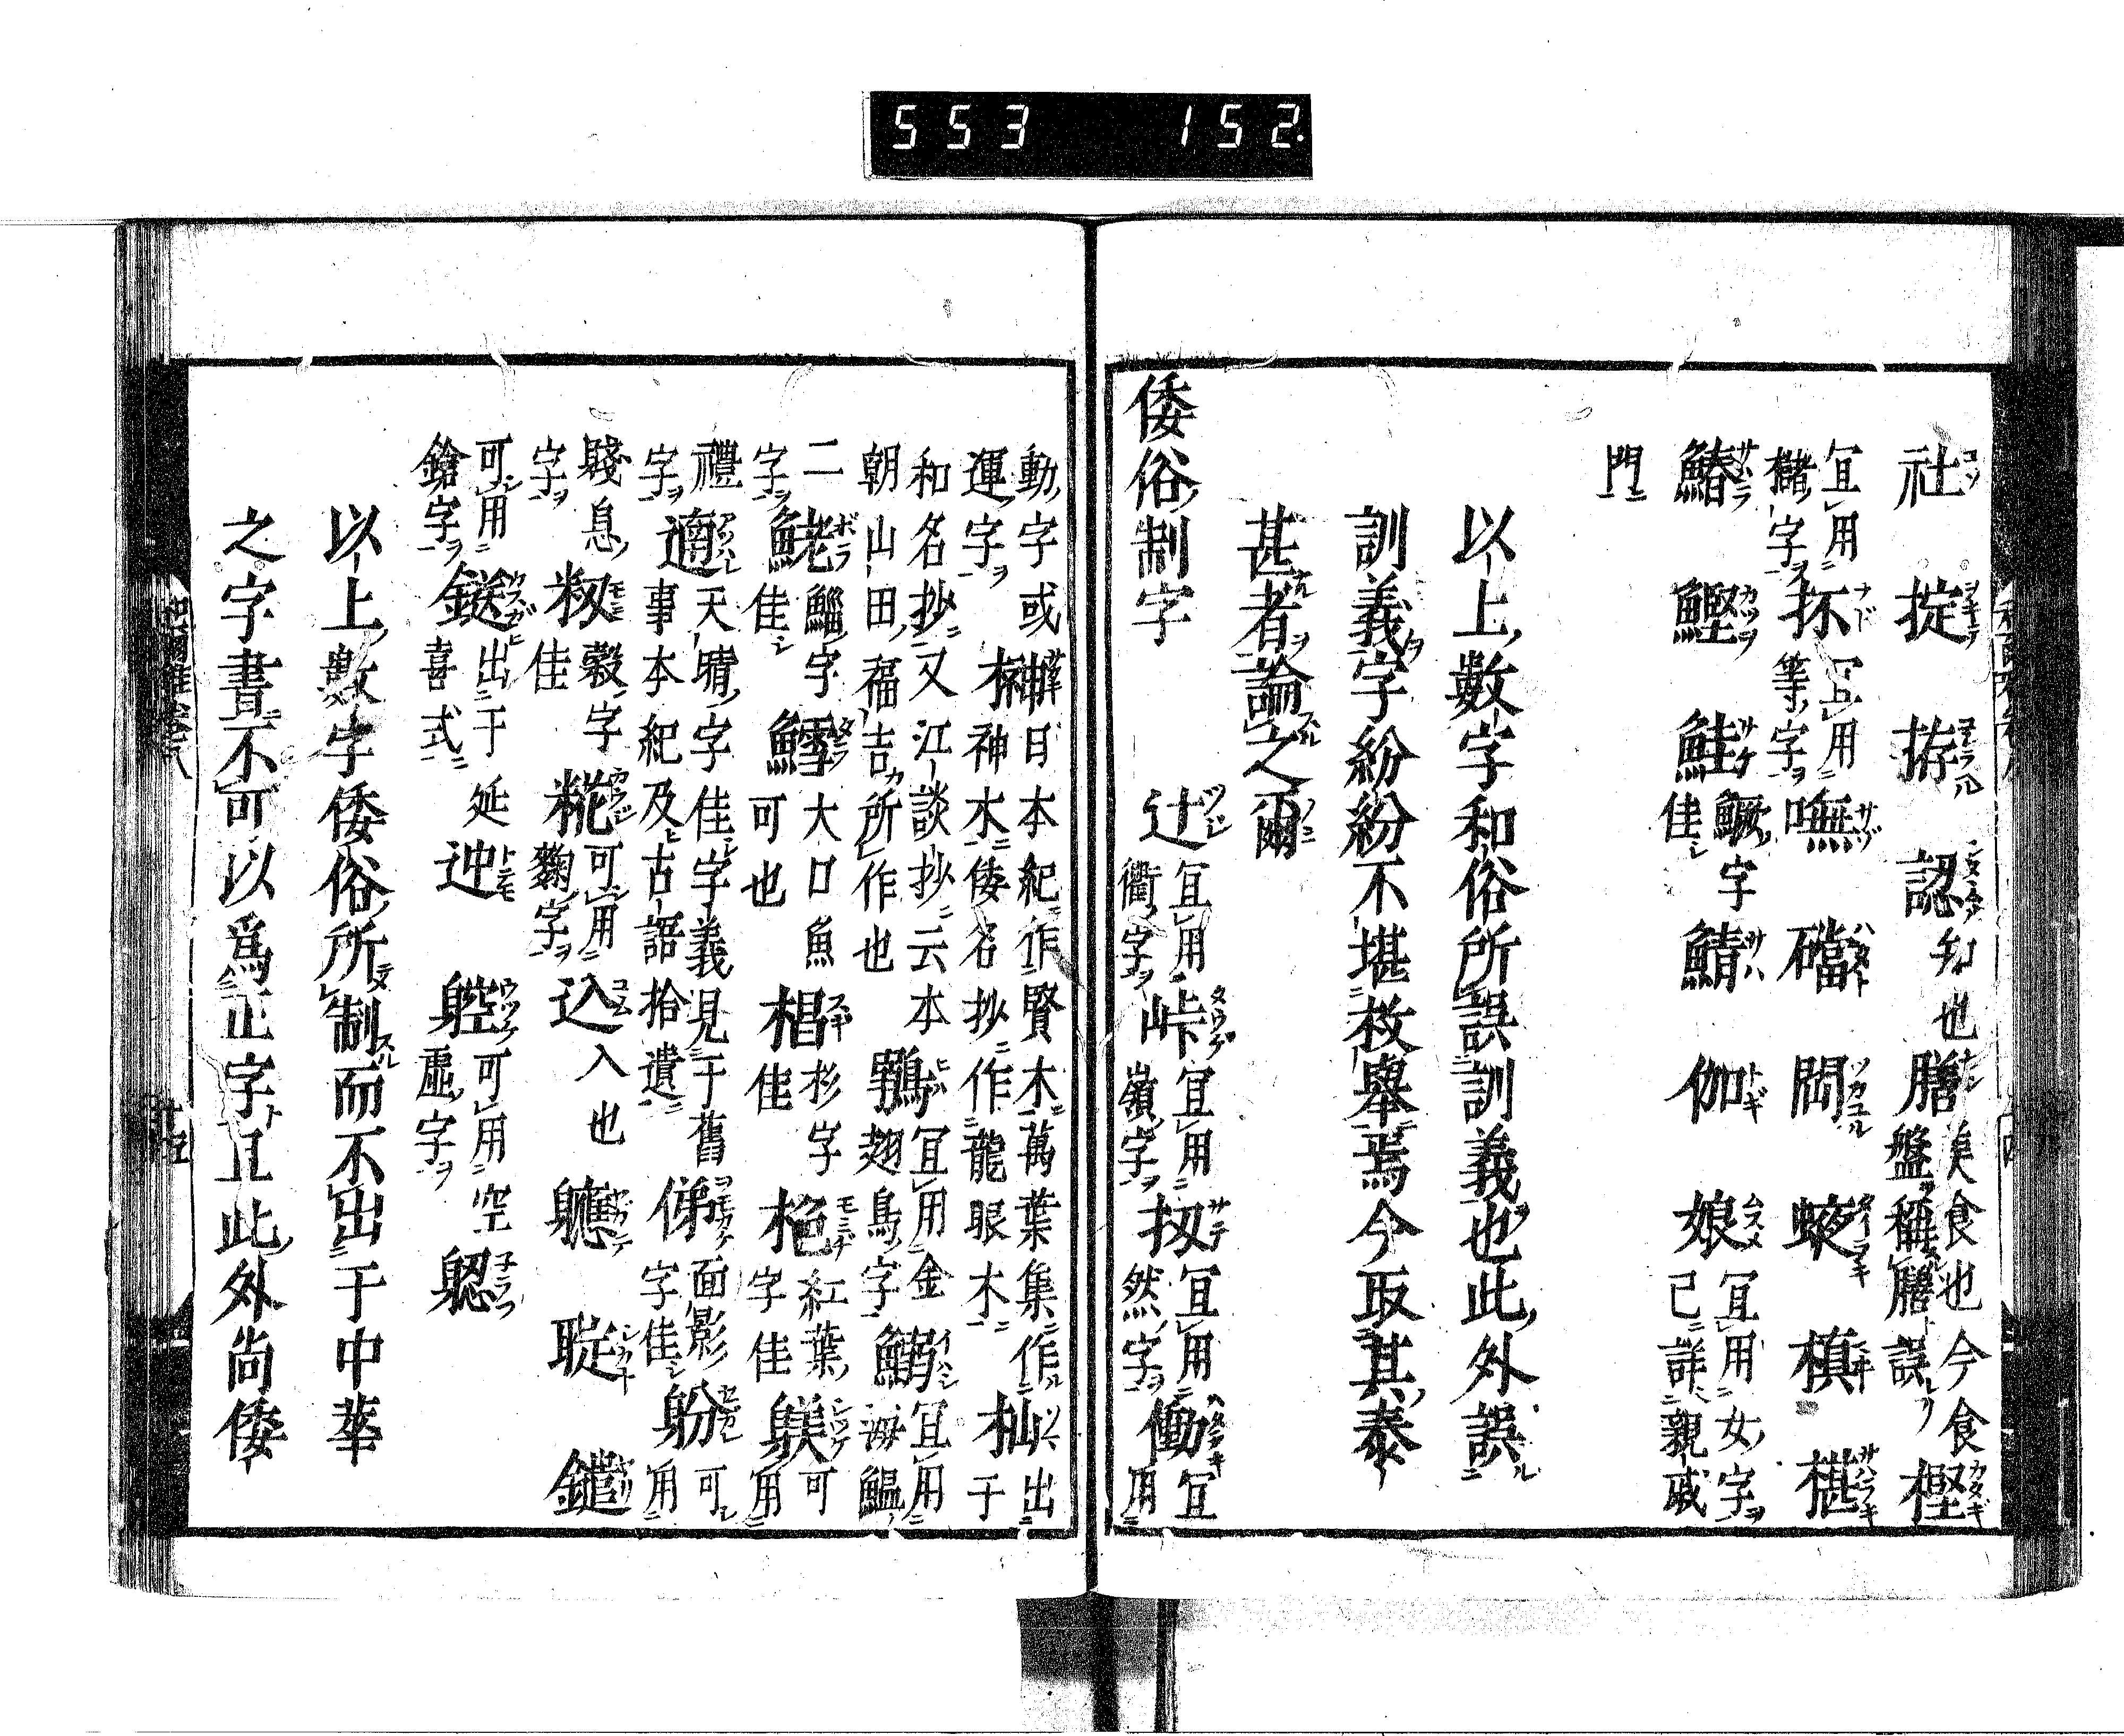 553 152
社 掟 拵 認 知也 膳 美食也今食盤稱膳誤 樫
宜用儲字 抔 宜用等字 嘸 礑 閊 蛺 槙 椹
鰆 鰹 鮭 鱖字佳 鯖 伽 娘 宜用女字已詳親戚
門
以上數字和俗所誤訓義也此外誤
訓義字紛紛不堪枚舉焉今取其泰
甚者論之爾
倭俗制字 辻 宜用衢字 峠 宜用嶺字 扨 宜用然字 働 宜用
動字或運字 榊 日本紀作賢木萬葉集作神木倭名抄作龍眼木 杣 出于
和名抄又江談抄云本朝山田福吉所作也 鵯 宜用金翅鳥字 鰯 宜用海鰮
二字 鮱 鯔字佳 鱈 大口魚可也 椙 杉字佳 栬 紅葉字佳 躾 可用
禮字 遖 天晴字佳字義見于舊事本紀及古語拾遺 俤 面影字佳 躮 可用
賤息字 籾 穀字佳 糀 可用麴字 込 入也 軈 聢 鑓
可用鎗字 鎹 出于延喜式 迚 躻 可用空虛字 䫴
以上數字倭俗所制而不出于中華
之字書不可以爲正字且此外尚倭
和爾雅卷八 十五